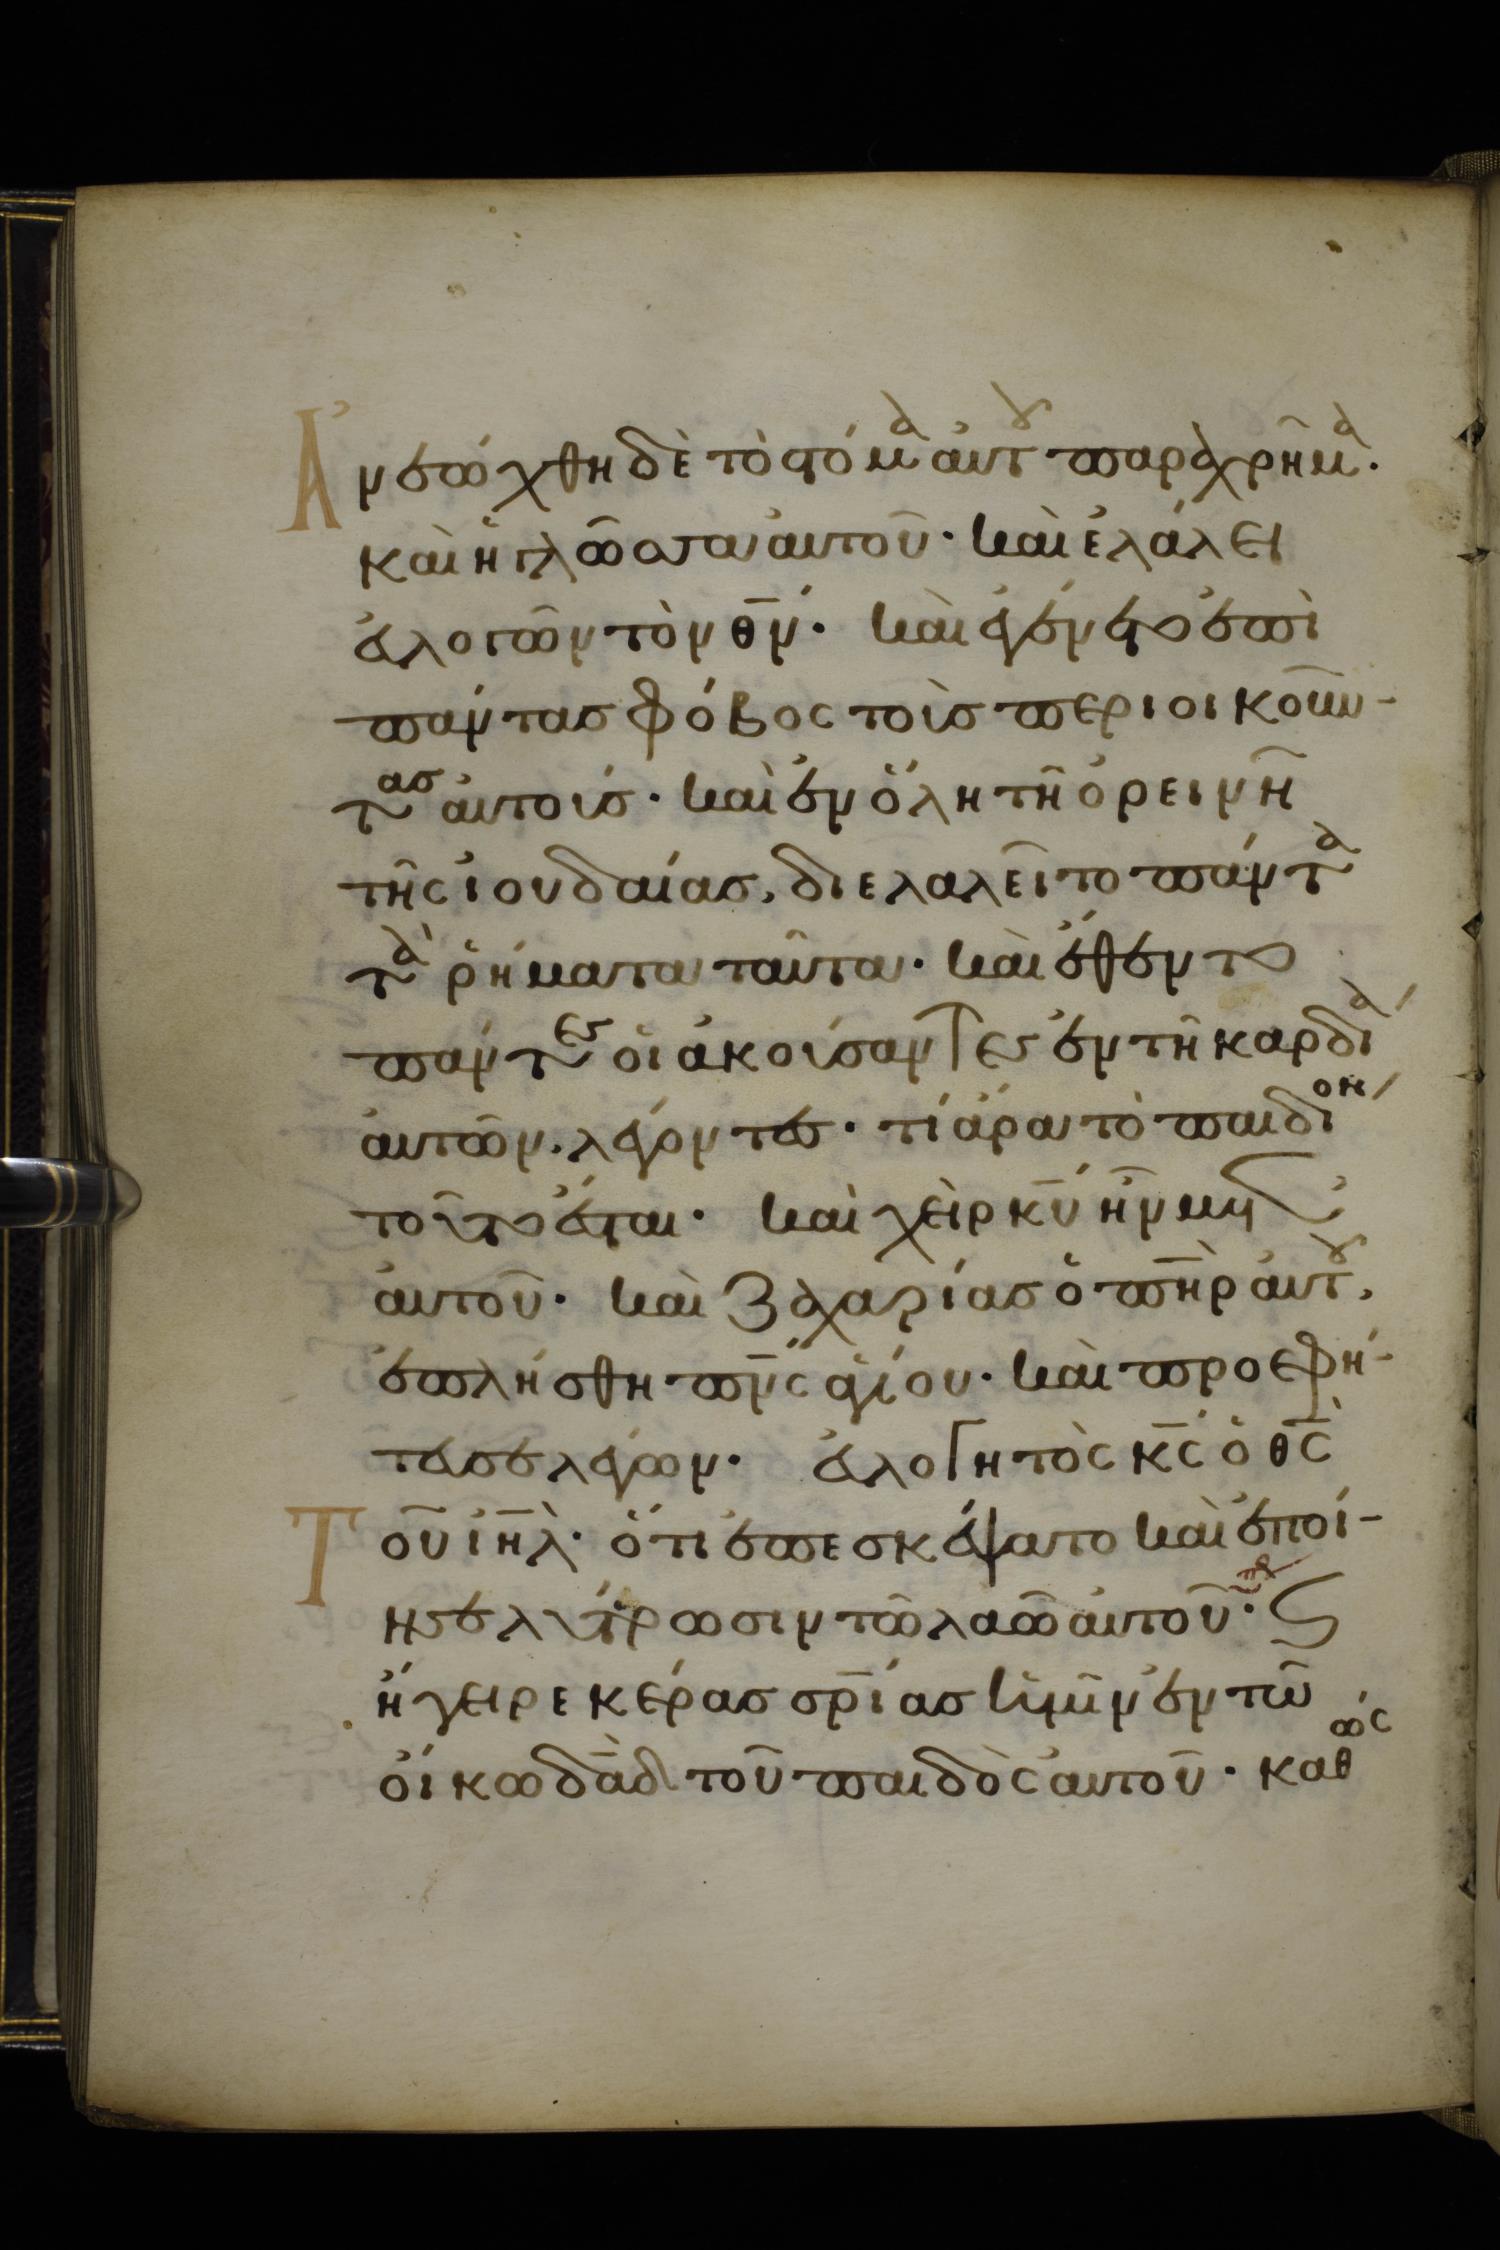 Ἀνεώχθη δὲ τὸ στόμα αὐτοῦ παραχρῆμα·
καὶ ἡ γλῶσσα αὐτοῦ· καὶ ἐλάλει
εὐλογῶν τὸν θ̅ν̅· καὶ ἐγένετο ἐπὶ
πάντας φόβος τοὺς περιοικοῦν-
τας αὐτούς· καὶ ἐν ὅλη τῆ ὀρεινῆ
τῆς ἰουδαίας, διελαλεῖτο πάντα
τὰ ῥήματα ταῦτα· καὶ ἔθεντο
πάντες οἱ ἀκούσαντες ἐν τῆ καρδία
αὐτῶν, λέγοντες· τί ἄρα τὸ παιδίον
τοῦτο ἔσται· καὶ χεὶρ κ̅υ̅ ἦν μετ'
αὐτοῦ· καὶ Ζαχαρίας ὁ π̅η̅ρ̅ αὐτοῦ,
ἐπλήσθη π̅ν̅ς̅ ἁγίου· καὶ προεφή-
τευσε λέγων· εὐλογητὸς κ̅ς̅ ὁ θ̅ς̅
Τοῦ ι̅η̅λ̅· ὅτι ἐπεσκέψατο καὶ ἐποί-
ησε λύτρωσιν τῶ λαῶ αὐτοῦ· ϛ
ἤγειρε κέρας σ̅ρ̅ίας ἡμῖν ἐν τῶ
οἴκω δ̅α̅δ̅ τοῦ παιδὸς αὐτοῦ· καθὼς